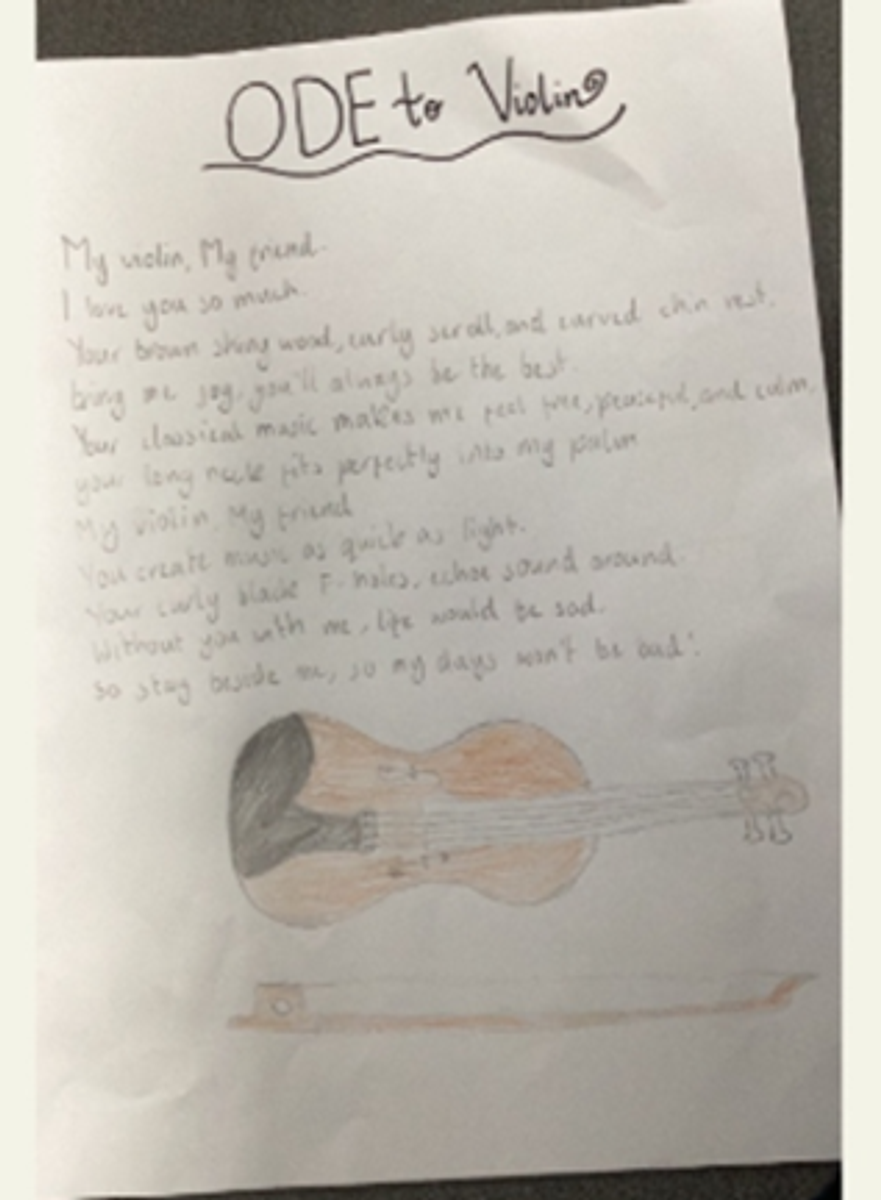 ODE to Violin
My violin, My friend.
I love you so much.
Your brown shiny wood, curly scroll, and curved chin rest.
bring me joy, you'll always be the best.
Your classical music makes me feel free, peaceful, and calm,
your long neck fits perfectly into my palm
My violin, My friend
You create music as quick as light.
Your curly black F-holes, echoe sound around.
Without you with me, life would be sad.
So stay beside me, so my days won't be bad!